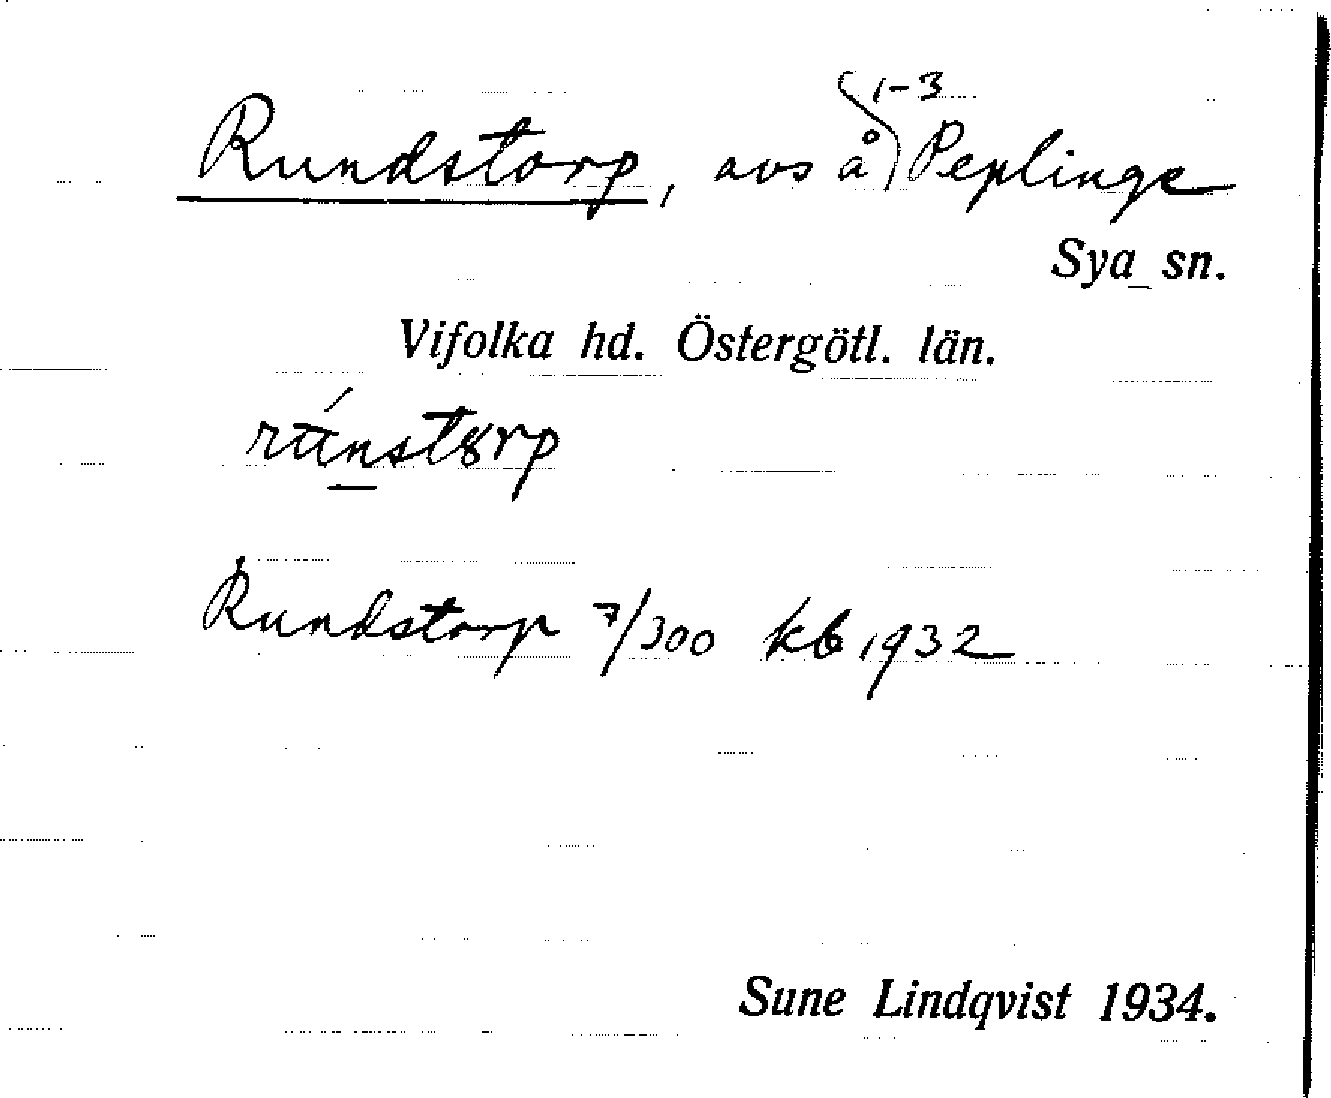 1-3
Rundstorp, avs å Peplinge
Sya sn.
Vifolka hd. Östergötl. län.
Rundstorp 7/300 kb 1932
Sune Lindqvist 1934.